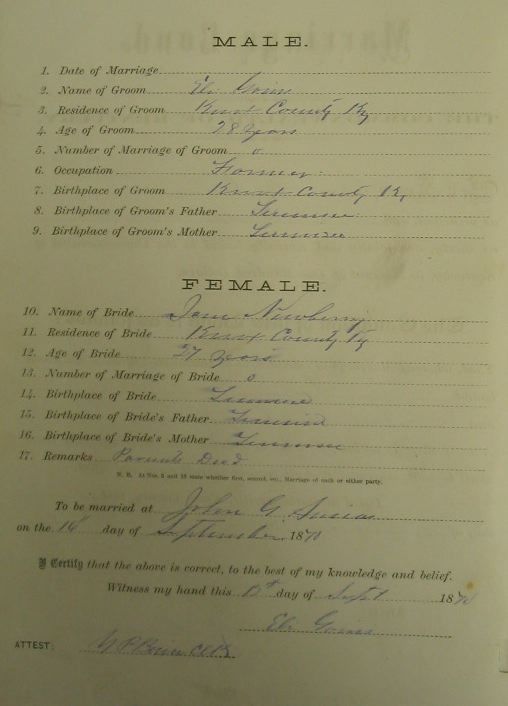 MALE.
1. Date of Marriage
2. Name of Groom Eli Goins
3. Residence of Groom Knox County Ky
4. Age of Groom 28 years
5. Number of Marriage of Groom 0
6. Occupation Farmer
7. Birthplace of Groom Knox County Ky
8. Birthplace of Groom's Father Tennessee
9. Birthplace of Groom's Mother Tennessee
FEMALE.
10. Name of Bride Jane Newberry
11. Residence of Bride Knox County Ky
12. Age of Bride 27 years
13. Number of Marriage of Bride 0
14. Birthplace of Bride Tennessee
15. Birthplace of Bride's Father Tennessee
16. Birthplace of Bride's Mother Tennessee
17. Remarks Parents Dead
N. B. At Nos. 5 and 13 state whether first, second, etc., Marriage of each or either party.
To be married at John G.
on the 16 day of September 1870
I Certify that the above is correct, to the best of my knowledge and belief.
Witness my hand this day of Sept 1870
Eli Goins
ATTEST: